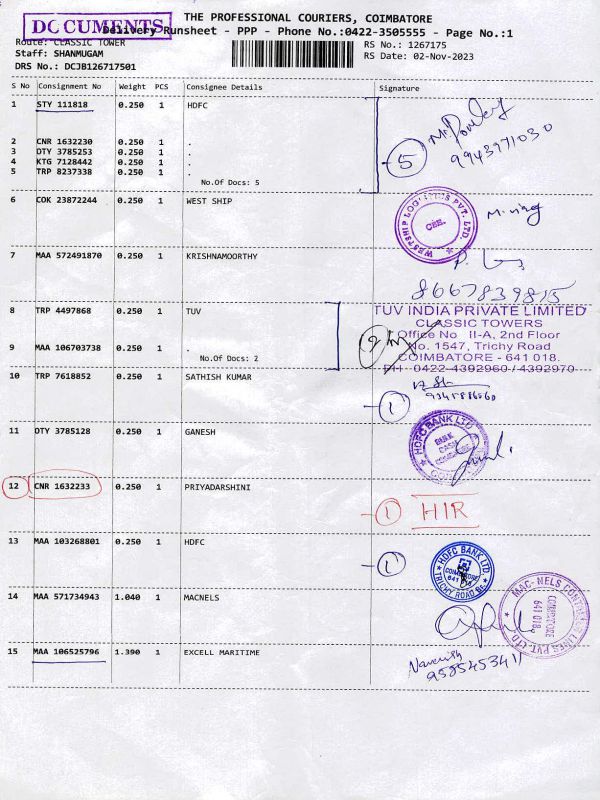 DOCUMENTS
THE PROFESSIONAL COURIERS, COIMBATORE
Delivery Runsheet - PPP - Phone No.:0422-3505555 - Page No.:1
Route: CLASSIC TOWER
RS No.: 1267175
Staff: SHANMUGAM
RS Date: 02-Nov-2023
DRS No.: DCJB126717501
S No Consignment No Weight PCS Consignee Details Signature
1 STY 111818 0.250 1 HDFC
2 CNR 1632230 0.250 1 .
3 OTY 3785253 0.250 1 .
4 KTG 7128442 0.250 1 .
5 TRP 8237338 0.250 1 .
No.Of Docs: 5
5
9943971030
6 COK 23872244 0.250 1 WEST SHIP
WESTSHIP LOGISTICS PVT. LTD.
CBE.
7 MAA 572491870 0.250 1 KRISHNAMOORTHY
8667839815
8 TRP 4497868 0.250 1 TUV
9 MAA 106703738 0.250 1 .
No.Of Docs: 2
2
TUV INDIA PRIVATE LIMITED
CLASSIC TOWERS
Office No II-A, 2nd Floor
No. 1547, Trichy Road
COIMBATORE - 641 018.
PH 0422-4392960 / 4392970
10 TRP 7618852 0.250 1 SATHISH KUMAR
1
11 OTY 3785128 0.250 1 GANESH
HDFC BANK LTD
12 CNR 1632233 0.250 1 PRIYADARSHINI
1 HIR
13 MAA 103268801 0.250 1 HDFC
1
HDFC BANK LTD.
COIMBATORE
641 018
TRICHY ROAD Br.
14 MAA 571734943 1.040 1 MACNELS
MAC-NELS CONTAINER LINES PVT. LTD
COIMBATORE
641 018
15 MAA 106525796 1.390 1 EXCELL MARITIME
Naveenish
9585453411